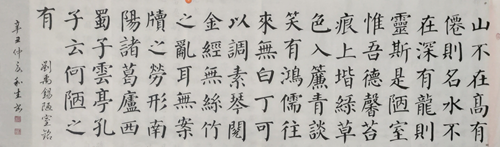 山不在高有
僊則名水不
在深有龍則
靈斯是陋室
惟吾德馨苔
痕上堦緑草
色入簾青談
笑有鴻儒往
來無白丁可
以調素琴閱
金經無絲竹
之亂耳無案
牘之勞形南
陽諸葛廬西
蜀子雲亭孔
子云何陋之
有
劉禹錫陋室銘
辛丑仲